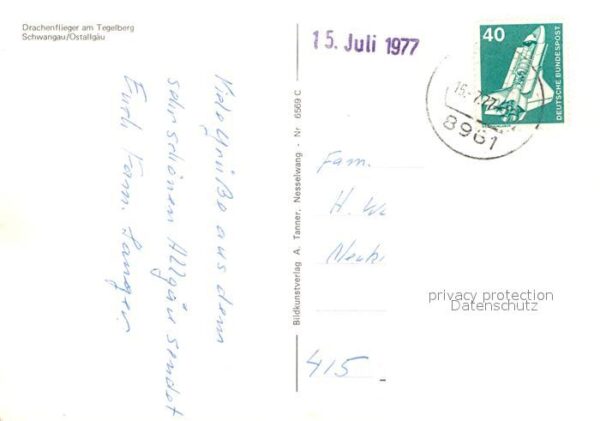 Drachenflieger am Tegelberg
Schwangau/Ostallgäu
15. Juli 1977
40
DEUTSCHE BUNDESPOST
15.-7.77-
8961
Viele Grüße aus dem
sehr schönen Allgäu sendet
Euch Fam. Langer
Bildkunstverlag A. Tanner, Nesselwang - Nr 6569 C
Fam.
H. W
415
privacy protection
Datenschutz